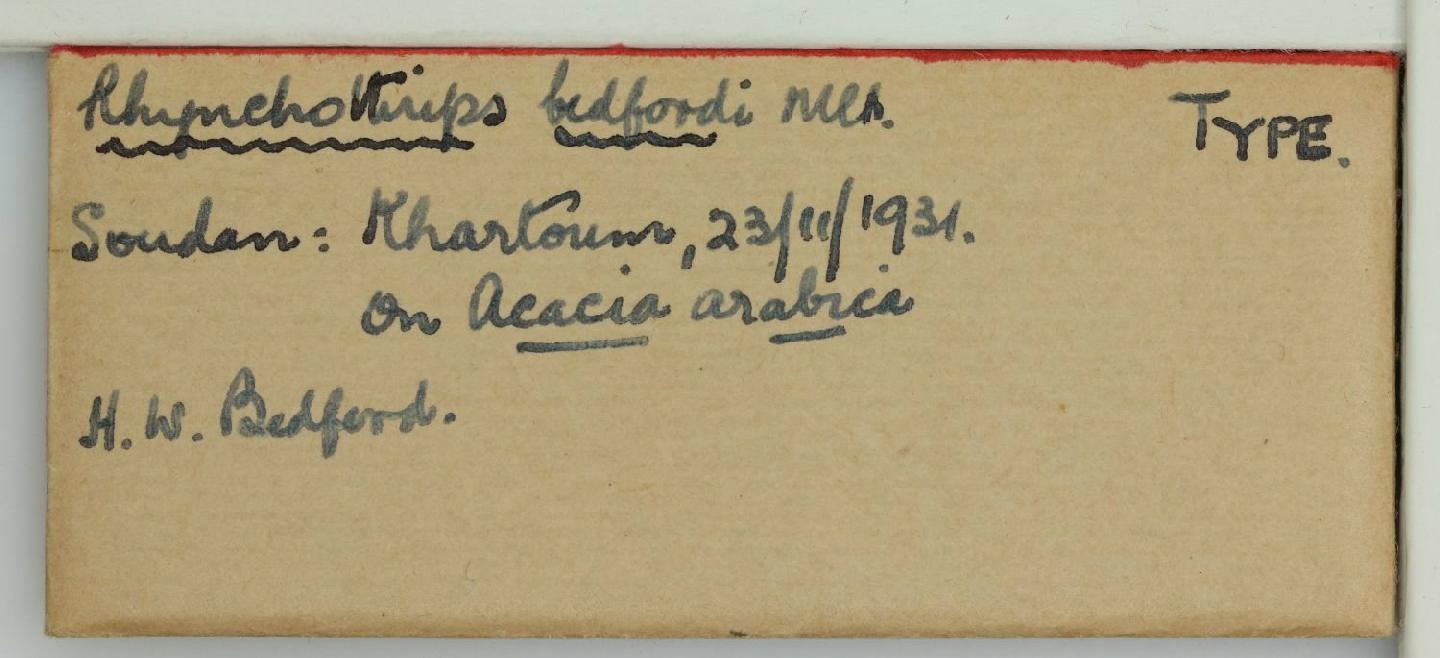 Rhynchothrips bedfordi TYPE.
Soudan: Khartoum, 23/11/1931.
On Acacia arabica
H. W. Bedford.